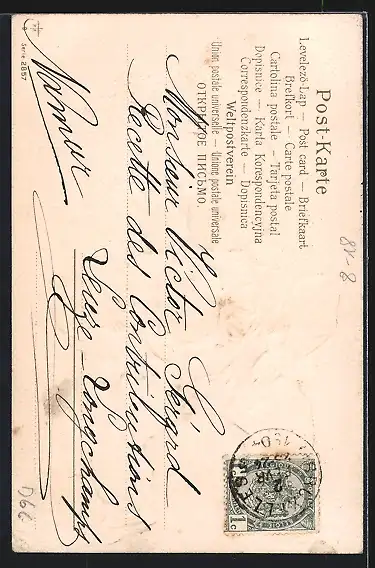 Post-Karte
Levelező-Lap — Post card — Briefkaart
Brefkort — Carte postale
Cartolina postale — Tarjeta postal
Dopisnice — Karta Korespondencyjna
Correspondenzkarte — Dopisnica
Weltpostverein
Union postale universelle — Unione postale universale
ОТКРЫТОЕ ПИСЬМО.
Monsieur Victor Gérard
Recette des Contributions
Leuze-Longchamps
Namur
Serie 2857
84-8
D66
1c